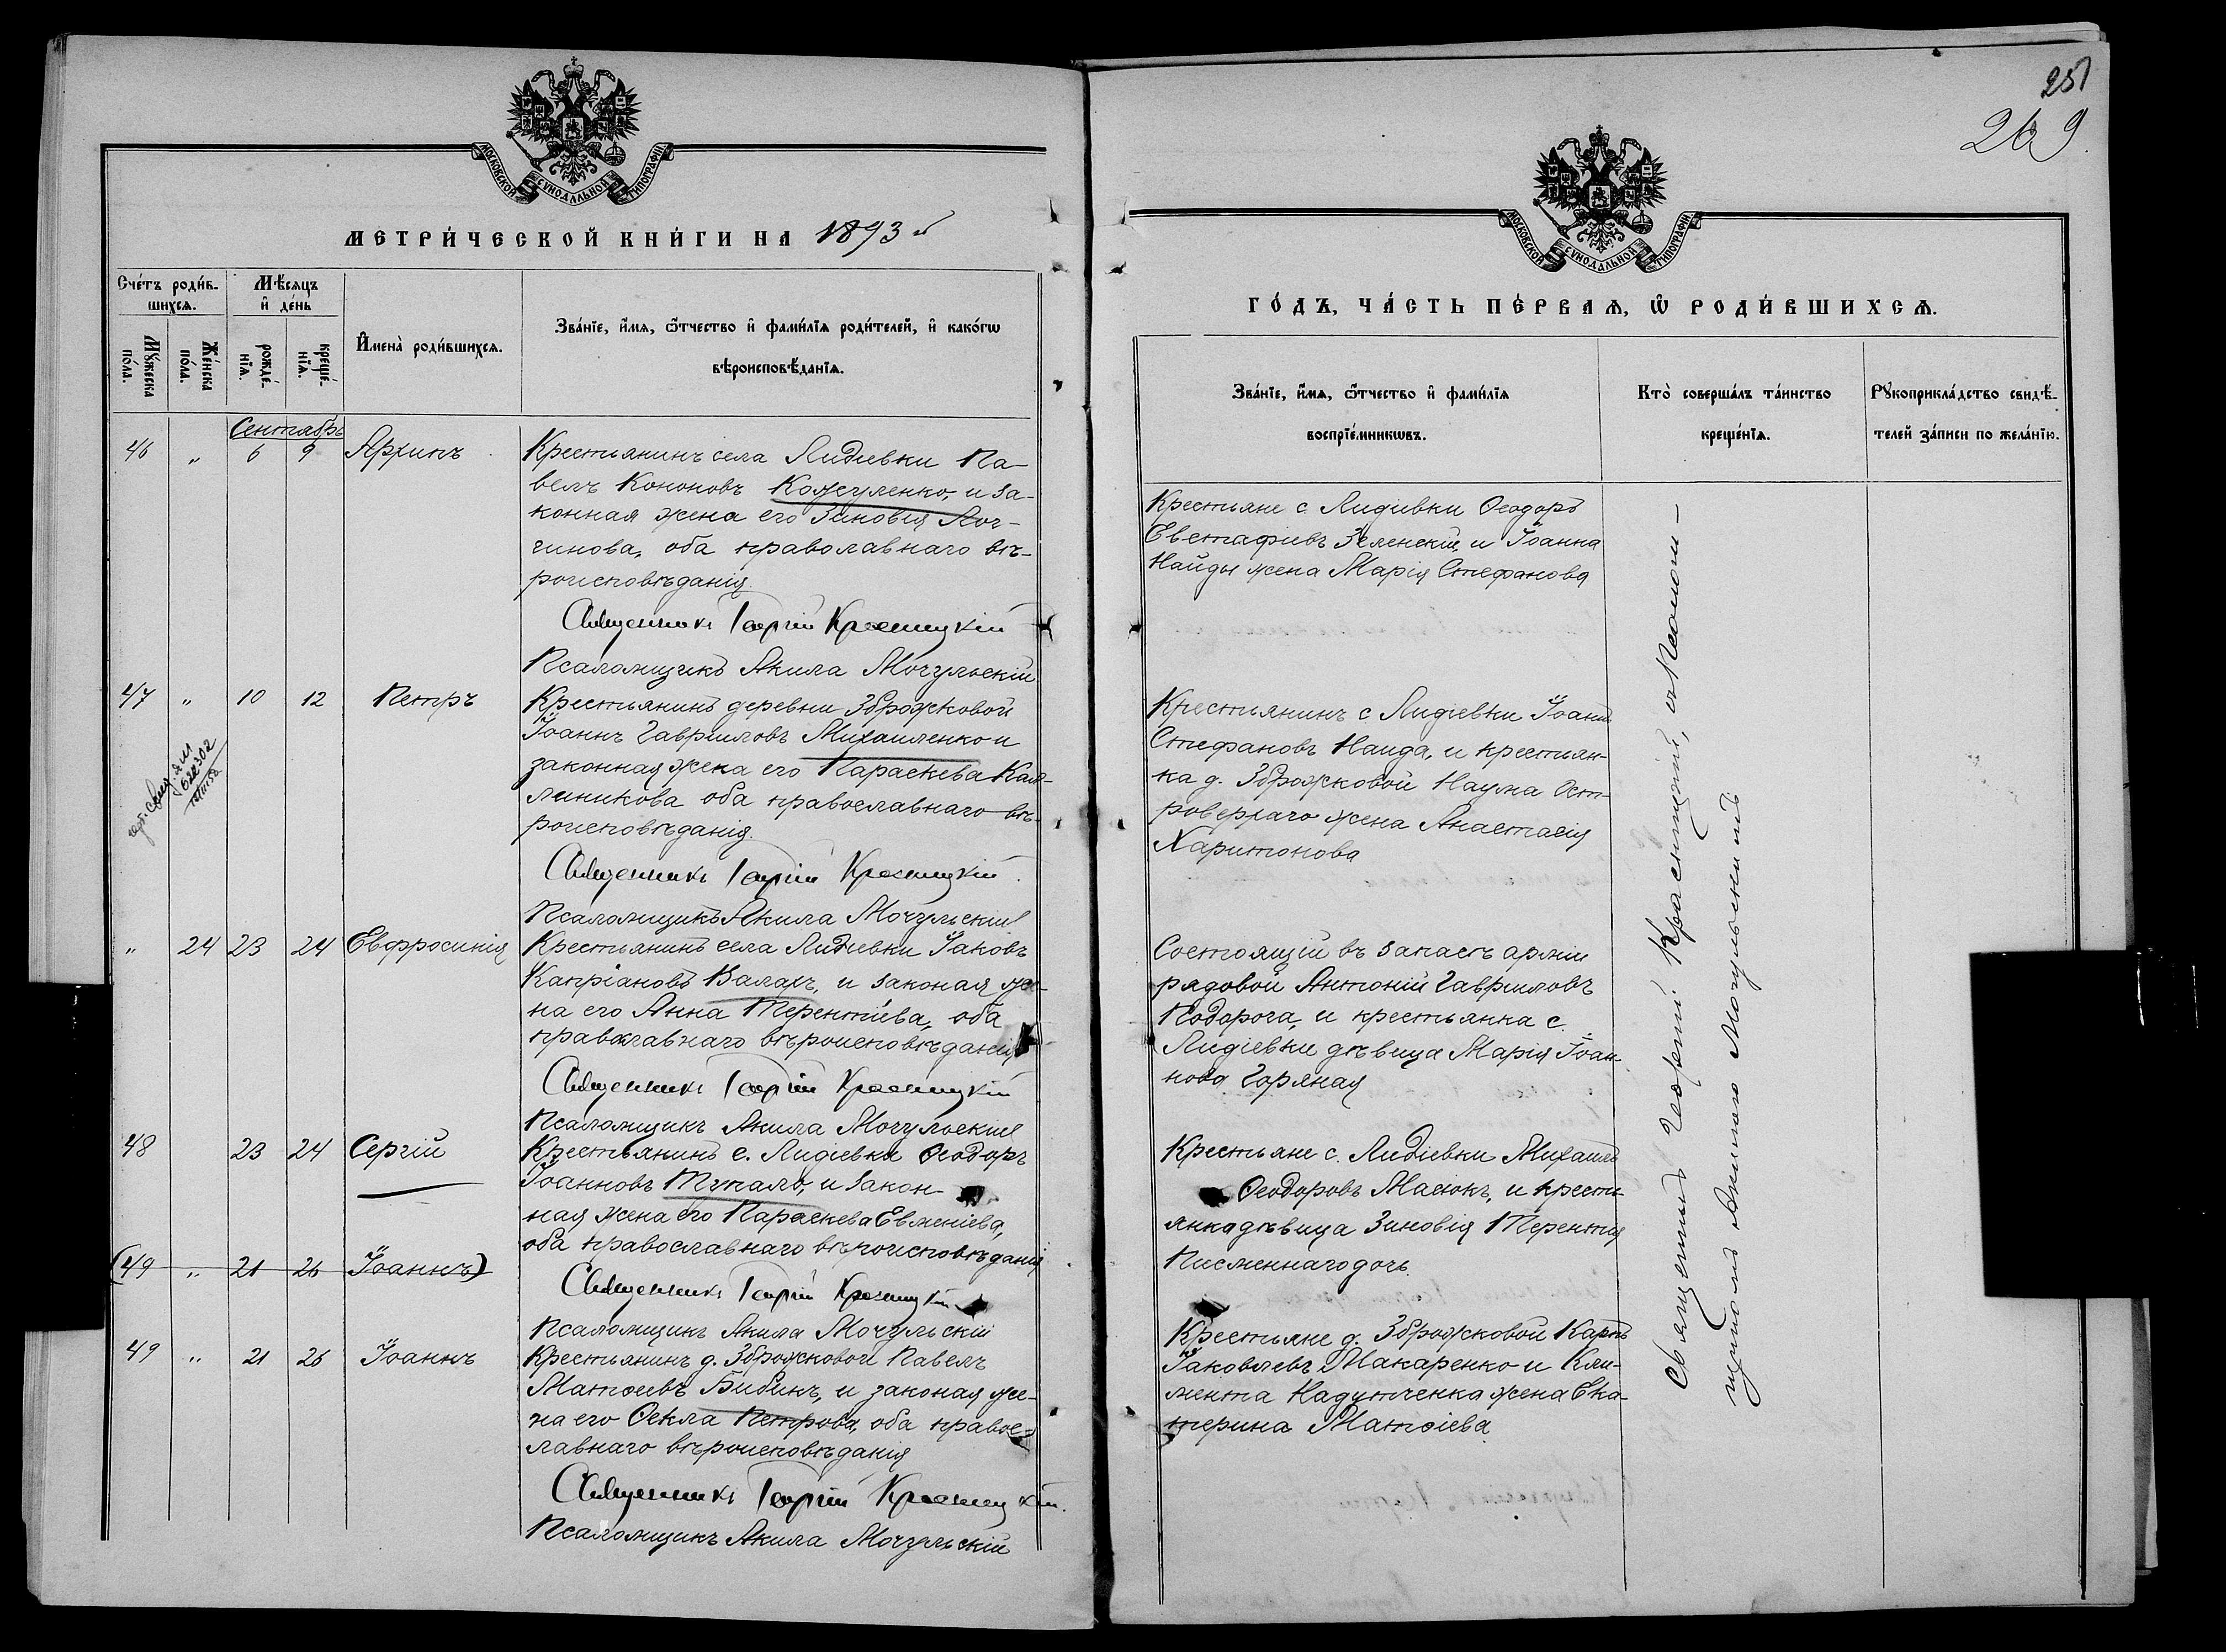 МОСКОВСКОЙ СѴНОДАЛЬНОЙ ТИПОГРАФІИ
МЕТРИ́ЧЕСКОЙ КНИ́ГИ НА 1893
Сче́тъ роди́в-
шихсѧ.
Мѣ́сѧцъ
и҆ де́нь
Мꙋ́жеска
по́ла.
Же́нска
по́ла.
рожде́-
нїѧ.
креще́-
нїѧ.
И҆мена̀ роди́вшихсѧ.
Зва́нїе, и҆́мѧ, ѻ҆́тчество и҆ фами́лїѧ роди́телей, и҆ како́гѡ
вѣроисповѣ́данїѧ.
Сентябрь
46 " 6 9 Архипъ
Крестьянинъ села Лидіевки Па-
велъ Кононовъ Кожуленко, и за-
конная жена его Зиновія Лог-
гинова, оба православнаго вѣ-
роисповѣданія.
Священникъ Георгій Красницкій
Псаломщикъ Акила Мочульскій
47 " 10 12 Петръ
Крестьянинъ деревни Зброжковой
Іоаннъ Гавриловъ Михаиленко и
законная жена его Параскева Кал-
линикова оба православнаго вѣ-
роисповѣданія.
Священникъ Георгій Красницкій.
Псаломщикъ Акила Мочульскій
" 24 23 24 Евфросинія
Крестьянинъ села Лидіевки Іаковъ
Капріановъ Валахъ, и законая же-
на его Анна Терентіева, оба
православнаго вѣроисповѣданія
Священникъ Георгій Красницкій
Псаломщикъ Акила Мочульскій
48 23 24 Сергій
Крестьянинъ с. Лидіевки Ѳеодоръ
Іоанновъ Тупало, и закон-
ная жена его Параскева Евменіева,
оба православнаго вѣроисповѣданія
(49 " 21 26 Іоаннъ)
Священникъ Георгій Красницкій
Псаломщикъ Акила Мочульскій
49 " 21 26 Іоаннъ
Крестьянинъ д. Зброжковой Павелъ
Матѳеевъ Бибикъ, и законая же-
на его Ѳекла Петрова, оба правос-
лавнаго вѣроисповѣданія
Священникъ Георгій Красницкій.
Псаломщикъ Акила Мочульскій
251
269.
МОСКОВСКОЙ СѴНОДАЛЬНОЙ ТИПОГРАФІИ
ГО́ДЪ, ЧА́СТЬ ПЕ́РВАѦ, Ѡ҆ РОДИ́ВШИХСѦ.
Зва́нїе, и҆́мѧ, ѻ҆́тчество и҆ фами́лїѧ
воспрїе́мникѡвъ.
Кто̀ соверша́лъ та́инство
креще́нїѧ.
Рꙋкоприкла́дство свидѣ́-
телей за́писи по жела́нїю.
Крестьяне с. Лидіевки Ѳеодоръ
Евстафіевъ Зеленскій, и Іоанна
Найды жена Марія Стефанова
Крестьянинъ с Лидіевки Іоаннъ
Стефановъ Наида, и крестьян-
ка д. Зброжковой Наума Ост-
роверхаго жена Анастасія
Харитонова
Состоящій въ запасѣ арміи
рядовой Антоній Гавриловъ
Подорога, и крестьянка с.
Лидіевки дѣвица Марія Іоан-
нова Горяная
Крестьяне с. Лидіевки Михаилъ
Ѳеодоровъ Масюкъ, и кресть-
янка дѣвица Зиновія Терентія
Писменнаго дочь.
Крестьяне д. Зброжковой Карпъ
Іаковлевъ Макаренко и Кли-
мента Надутченка жена Ека-
терина Матѳіева
Священникъ Георгій Красницкій, съ Псалом-
щикомъ Акилою Мочульскимъ.